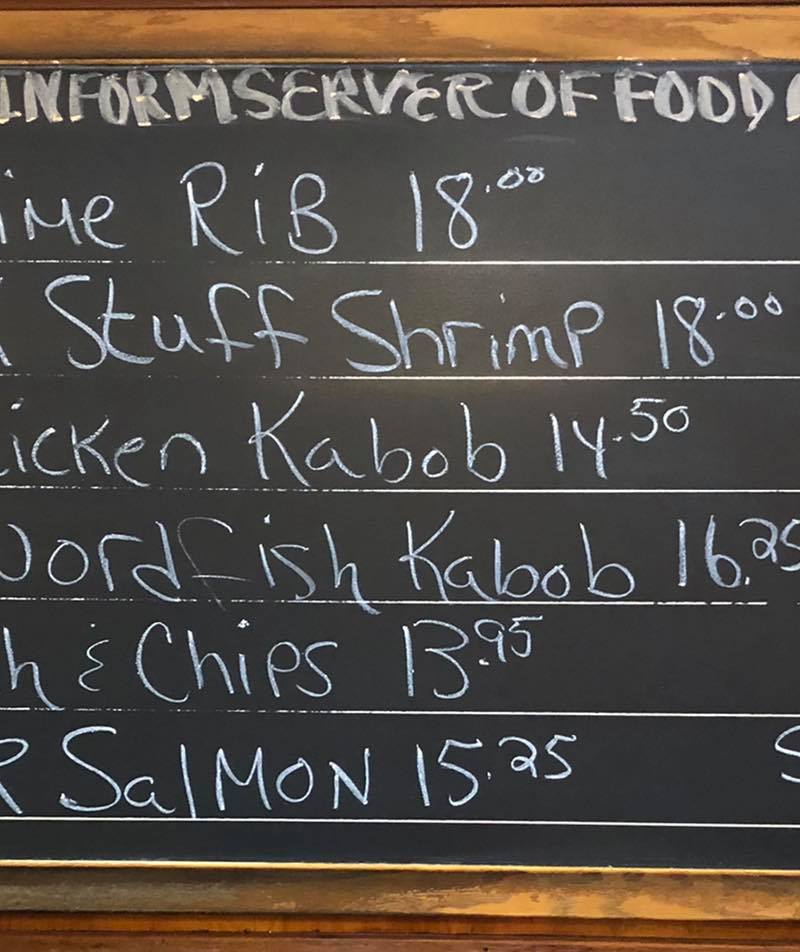 INFORM SERVER OF FOOD
ime RiB 18.00
Stuff Shrimp 18.00
icken Kabob 14.50
wordfish Kabob 16.25
h & Chips 13.95
R SalMON 15.25 S